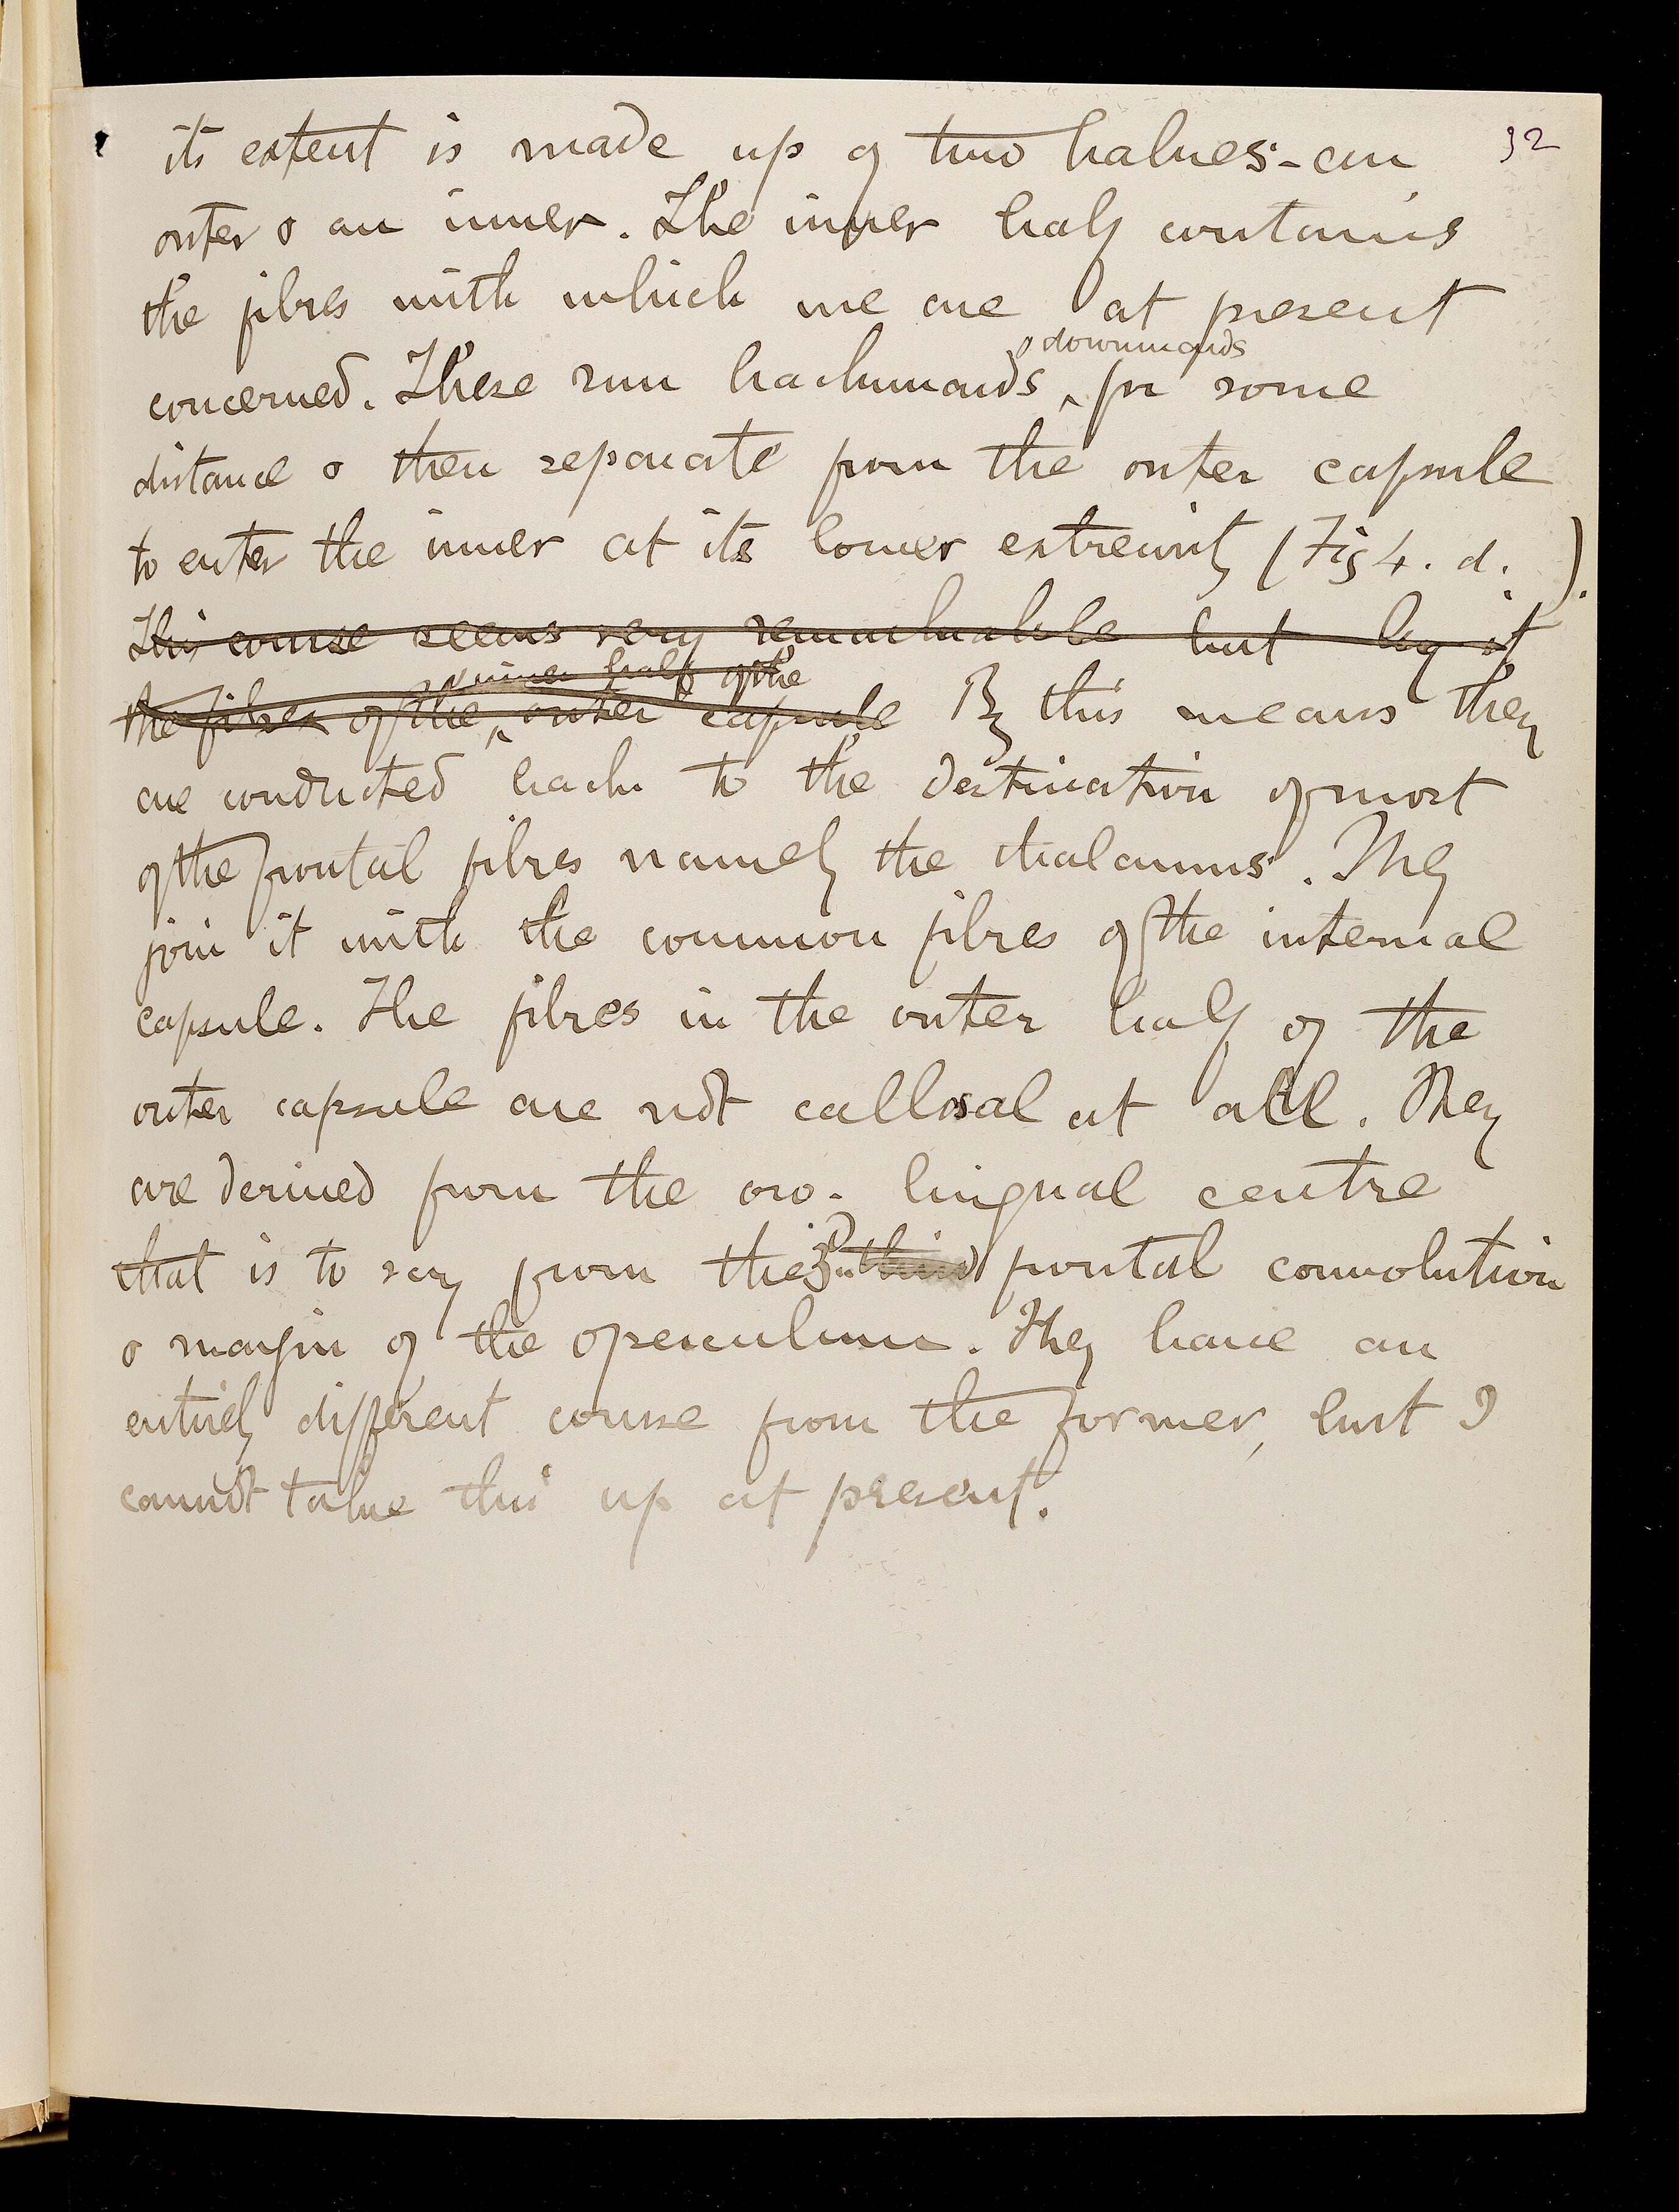 32
its extent is made up of two halves - an
outer & an inner. The inner half contains
the fibres with which we are at present
& downwards
concerned. These run backwards ‸ for some
distance & then separate from the outer capsule
to enter the inner at its lower extremity (Fig 4. d. ).
This course seems very remarkable but by it
inner half of the
the fibres of the ‸ outer capsule By this means they
are conducted back to the destination of most
of the frontal fibres namely the thalamus. They
join it with the common fibres of the internal
capsule. The fibres in the outer half of the
outer capsule are not callosal at all. They
are derived from the oro-lingual centre
that is to say from the 3rd third frontal convolution
& margin of the operculum. They have an
entirely different course from the former, but I
cannot take this up at present.